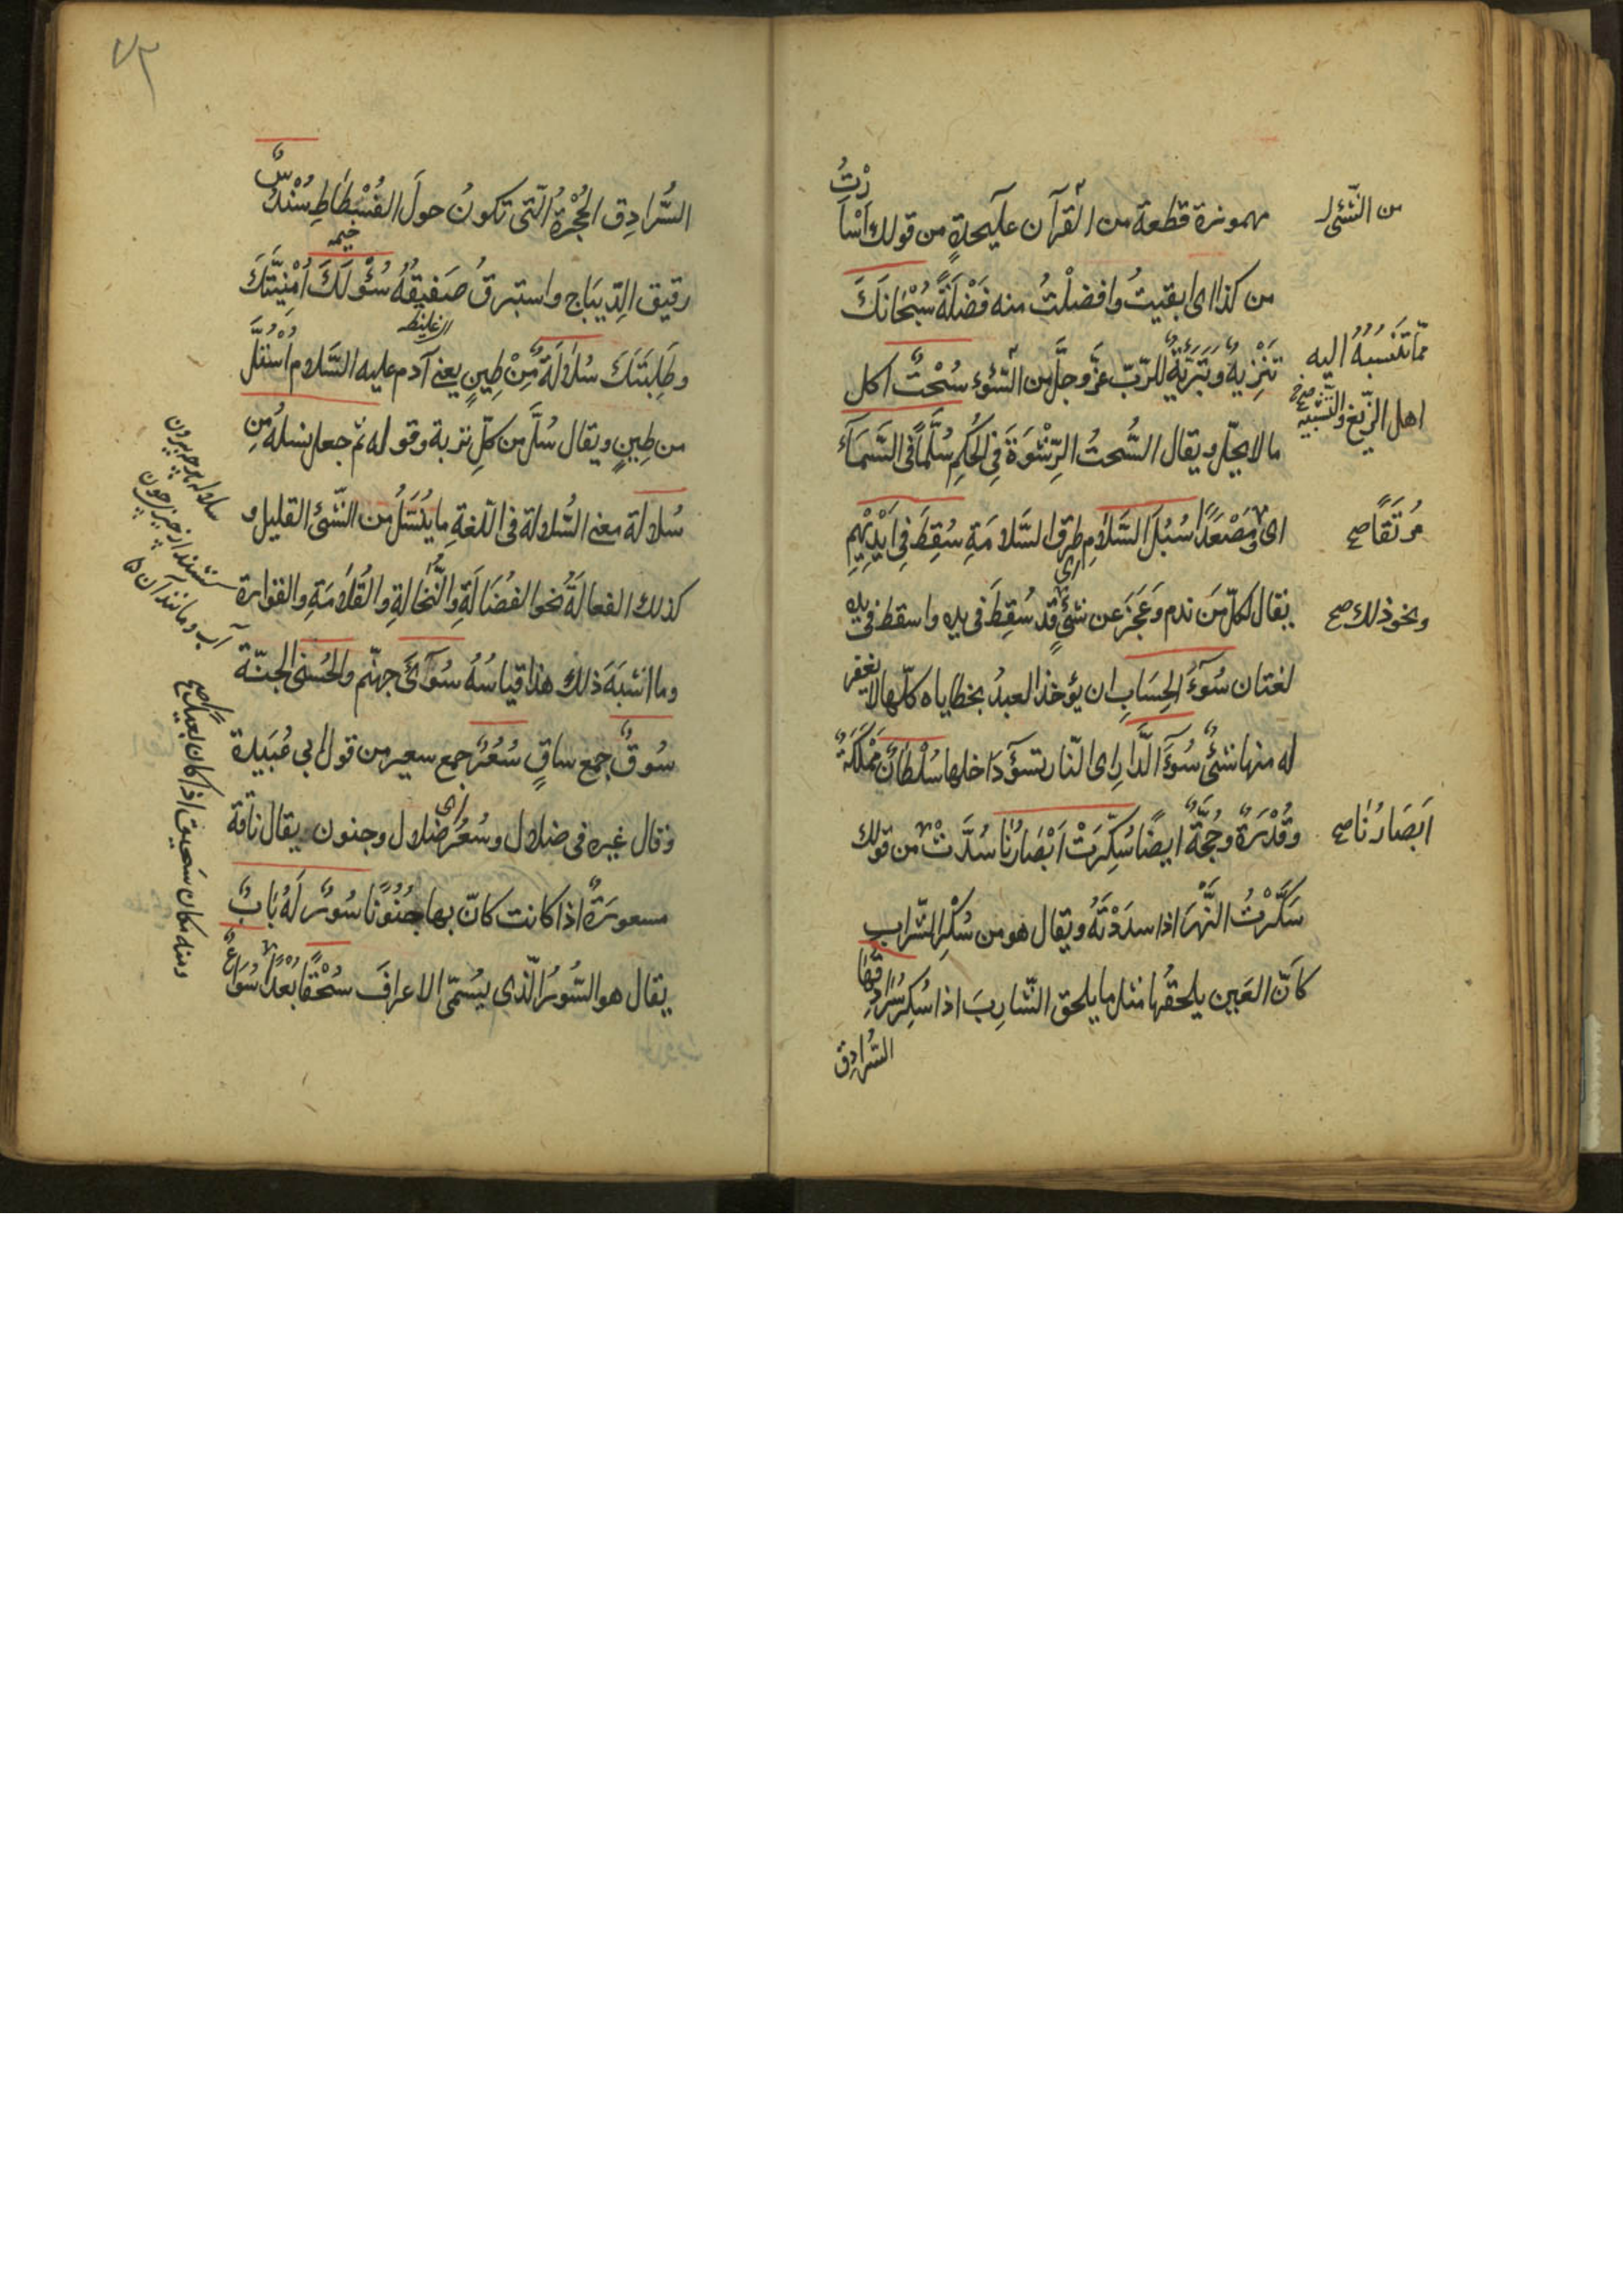 مهموزة قطعة من القرآن على حدةٍ من قولك اَسْأَرْتُ
من الشّئ
من كذا اى ابقيتُ وافضلْتُ منه فَضْلَةً سُبْحَانَكَ
تَنْزِيهٌ وتَبَرِئَةٌ للرّبّ عزّ وجلّ من السّوء سُحْتٌ اكل
ممّا تَنْسَبُهُ اليه
اهل الزّيغ والتّشبيه
مالا يحلّ ويقال السُّحتُ الرِّشْوَةَ فِى الحُكمِ سُلَّمًا فى السَّمَآءِ
اى مَصْعَدًا سُبُلَ السَّلَامِ طرق السَّلامَةِ سُقِطَ فِى اَيْدِيْهِم
مُرْتَقًا صح
يقال لكلّ مَن ندم وعَجَزَ عن شئٍ قد سُقِطَ فى يده واسقط فى يده
ونحو ذلك صح
لغتان سُوٓءُ الحِسَابِ ان يؤخذ العبدُ بخطاياه كلّها لا يغفر
له منها شئ سُوٓءُ الدَّارِ اى النّار تسوٓءُ داخلها سُلْطَانٌ مَمْلَكَةٌ
وقُدْرَةٌ وحُجَّةٌ ايضًا سُكِّرَتْ اَبْصَارُنَا سُدَّتْ من قولك
اَبْصَارُنَا صح
سَكَّرْتُ النَّهْرَ اذا سدَدْتَهُ ويقال هو من سُكْرِ الشَّرابِ
كاَنّ العَين يلحقُها مثل ما يلحق الشّارِبَ اذا سُكِر سُرَادِقُهَا
السُّرَادِق
٧٣
السُّرادِق الحُجْرَةُ الّتى تكونُ حولَ الفُسْطَاطِ سُنْدُسٌ
خيمه
رقيق الدِّيبَاج واستبرقُ صَفيقُهُ سُؤْلَكَ اُمْنِيَّتَكَ
وطَلِبَتَكَ سُلَالَةٌ مِّنْ طِينٍ يعنى آدم عليه السَّلام اُسْتُلَّ
من طينٍ ويقال سُلَّ من كلّ تربة وقوله ثمّ جعل نسلهُ مِن
سُلالة معنى السُّلالة فى اللّغةِ ما يُنْسَلُ من الشّئ القليل و
كذلك الفعالَةُ نحو الفُضَالَةِ والنُّخَالةِ والقُلَامَةِ والقوارة
وما اشبَهَ ذلك هذا قياسُهُ سُوٓآىَ جهنّم والحُسنى الجنّة
سُوقٌ جمع ساقٍ سُعُرٌ جمع سعير من قول ابى عُبَيدة
وقال غيره فى ضلال وسُعُرٍ اى ضلال وجنون يقال ناقة
مسعورةٌ اذا كانت كانّ بها جُنُونًا سُورٌ لَهُ بَابٌ
يقال هو السُّورُ الّذى يسُمّى الاعراف سُحْقًا بُعْدًا سُوَاعٌ
ومنه مكان سَحيق اذا كان بعيدًا صح